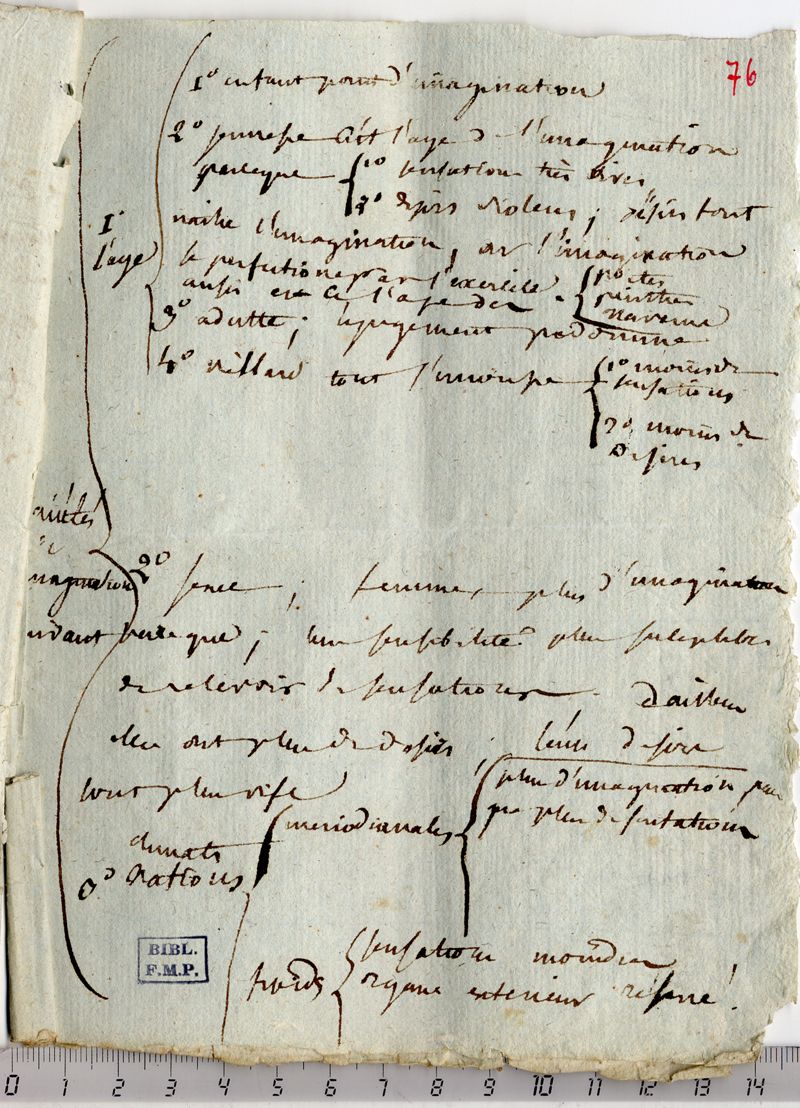 76
1° enfant point d'imagination
2° jeunesse c'est l'age de l'imagination
parceque 1° sensations très vives
2° desirs violens; désirs font
1°
l'age
naitre l'imagination, or l'imagination
se perfectionne par l'exercice
aussi est ce l'age des poetes
peintres
3° adulte; le jugement predomine
4° viellard tout l'inverse 1° moins de
sensations
2° moins de
desires
imagination
2° sexe; femmes plus d'imagination
parceque; leur sensibilité plus susceptible
de recevoir de sensations. D'ailleur
elles ont plus de desirs; leurs desirs
sont plus vifs
plus d'imagination par
ce que plus de sensations
meridionales
climats
nations
froids
sensations moindres
organe exterieur reserré
BIBL.
F.M.P.
0 1 2 3 4 5 6 7 8 9 10 11 12 13 14